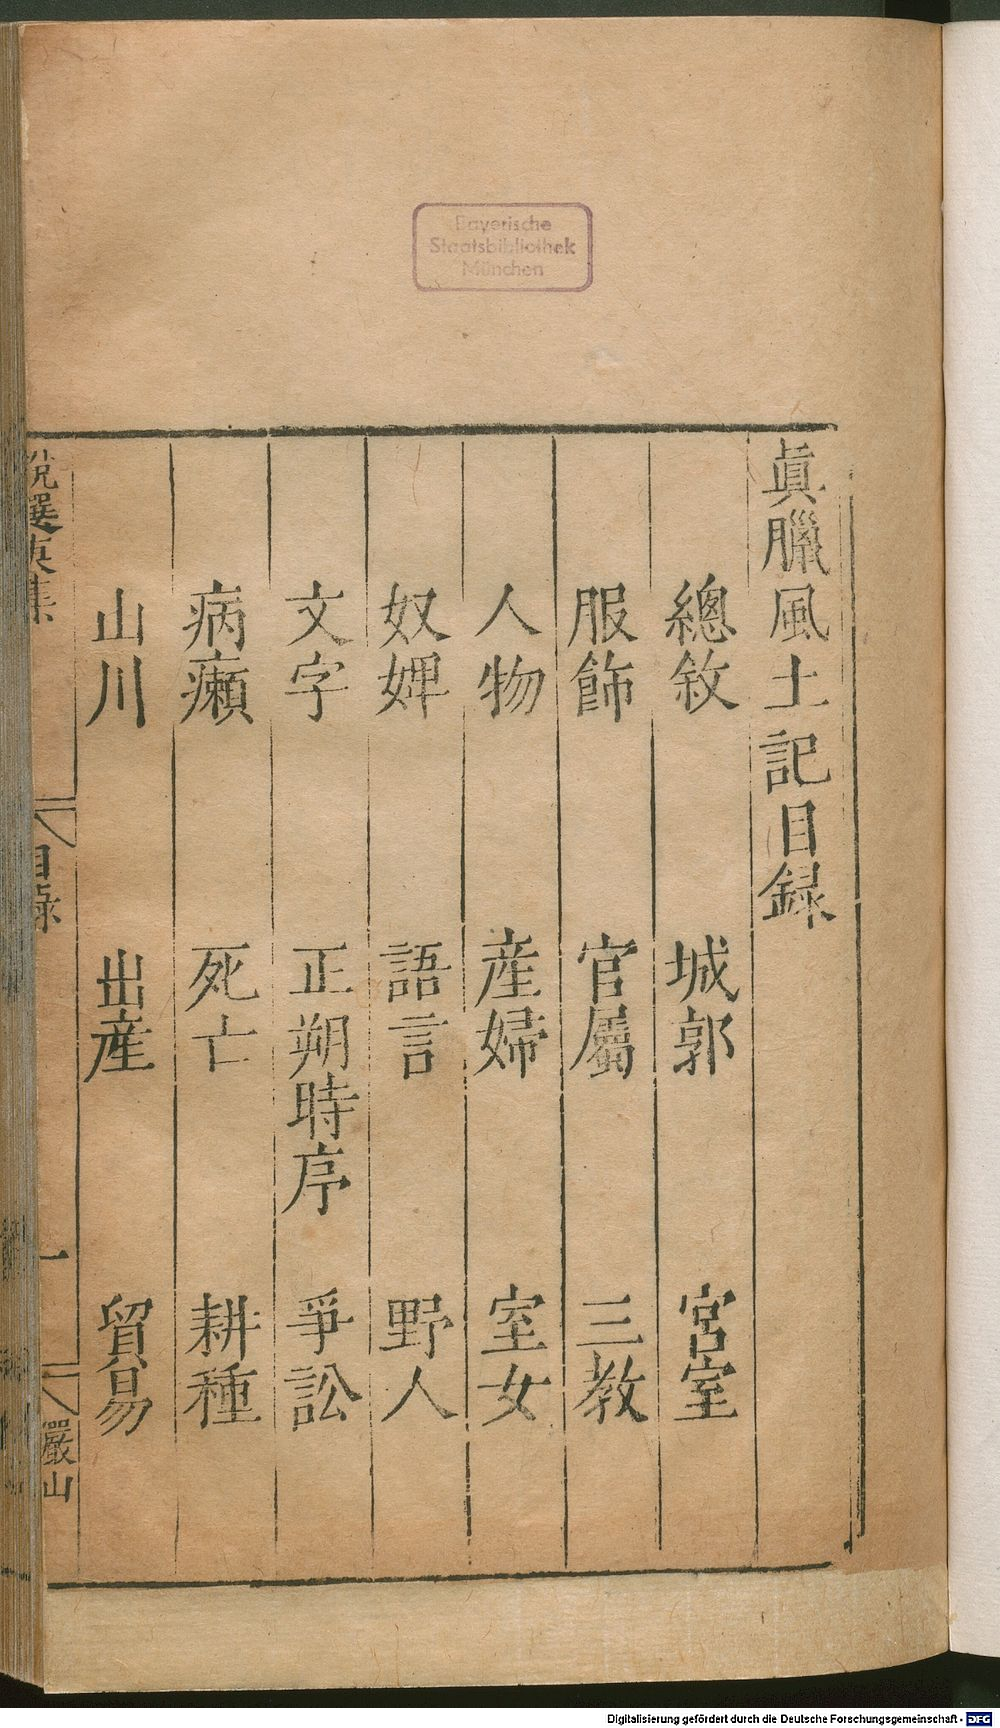 眞臘風土記目録
總敘 城郭 宮室
服飾 官屬 三教
人物 産婦 室女
奴婢 語言 野人
文字 正朔時序 爭訟
病癩 死亡 耕種
山川 出産 貿易
說選 集
目錄
一
儼山
Bayerische
Staatsbibliothek
München
Digitalisierung gefördert durch die Deutsche Forschungsgemeinschaft - DFG